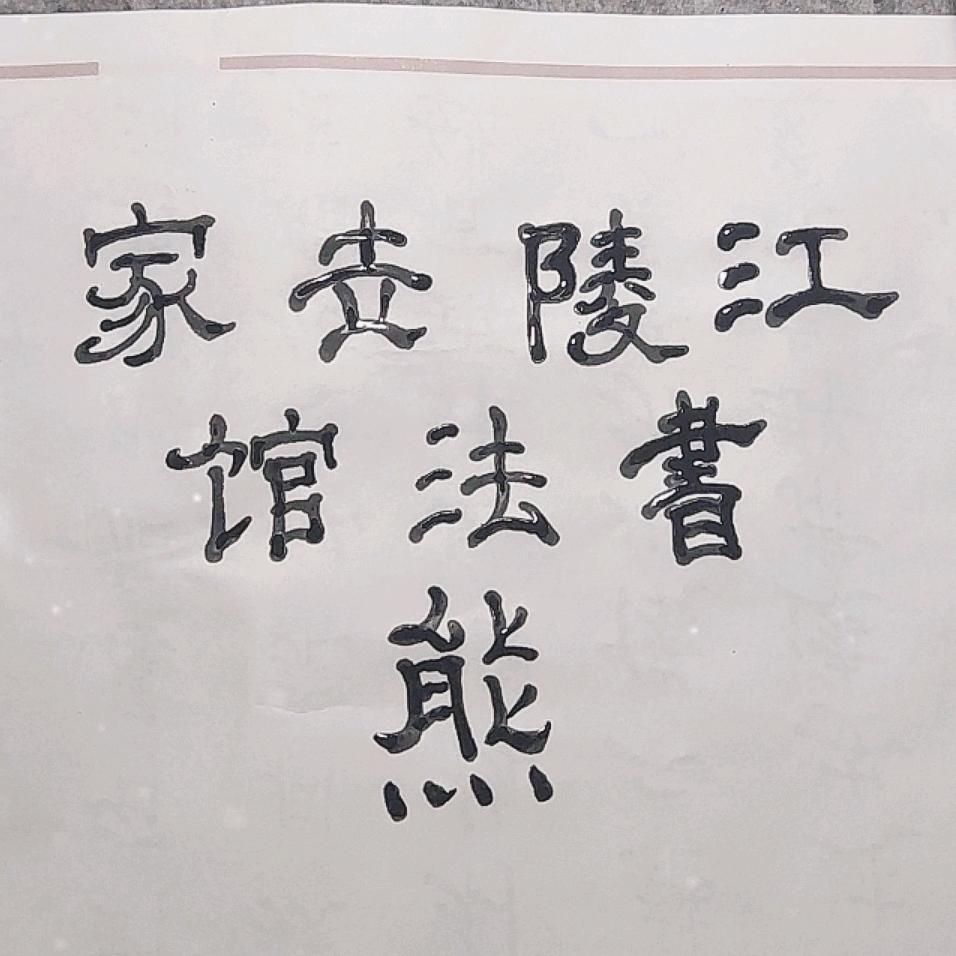 江陵壶家
書法馆
熊